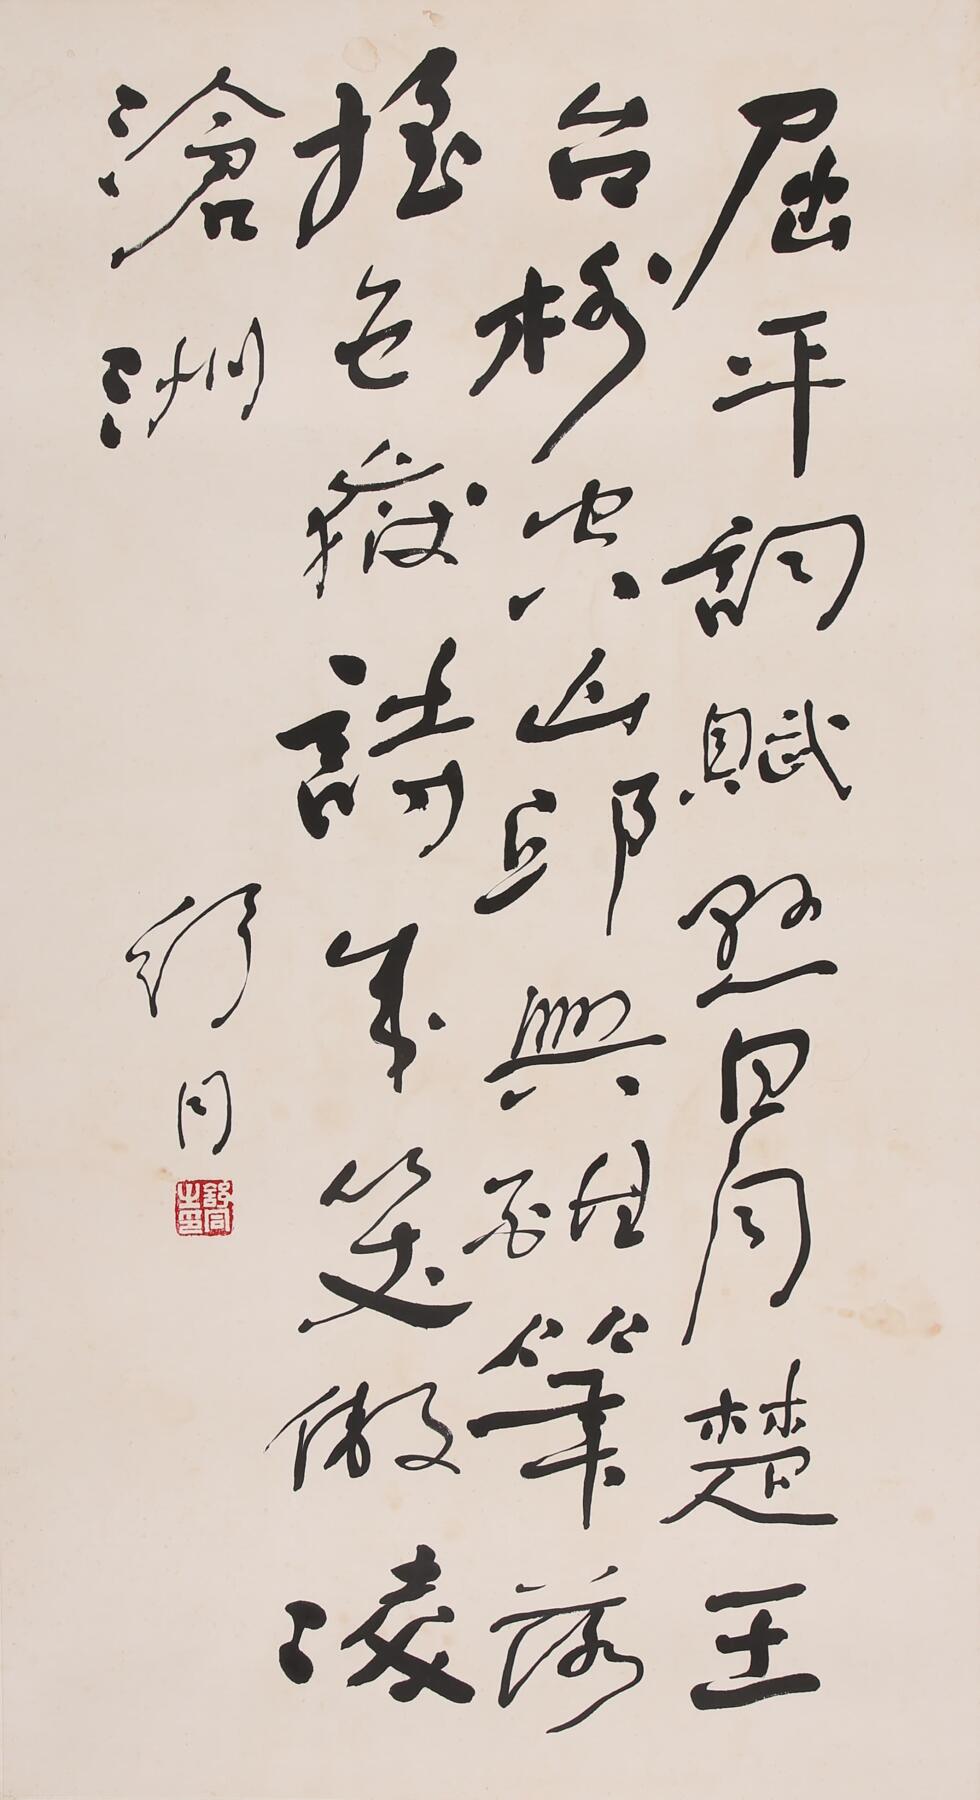 屈平詞賦懸日月楚王
台榭空山邱興酣筆落
搖五嶽詩成笑傲凌
滄洲
舒同
舒同之印